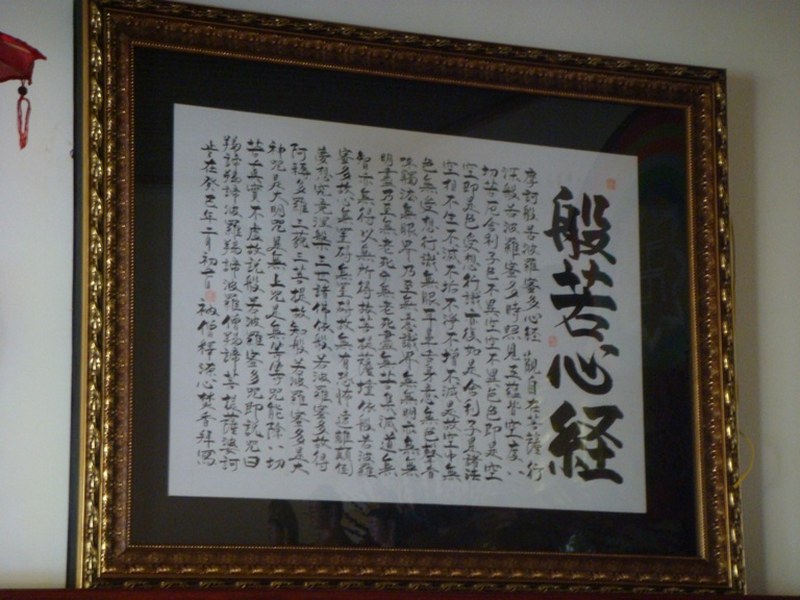 般若心経
摩訶般若波羅蜜多心経 觀自在菩薩行
深般若波羅蜜多時照見五蘊皆空度一
切苦厄舍利子色不異空空不異色色即是空
空即是色受想行識亦復如是舍利子是諸法
空相不生不滅不垢不淨不增不減是故空中無
色無受想行識無眼耳鼻舌身意無色聲香
味觸法無眼界乃至無意識界無無明亦無無
明盡乃至無老死亦無老死盡無苦集滅道無
智亦無得以無所得故菩提薩埵依般若波羅
蜜多故心無罣礙無罣礙故無有恐怖遠離顛倒
夢想究竟涅槃三世諸佛依般若波羅蜜多故得
阿耨多羅三藐三菩提故知般若波羅蜜多是大
神咒是大明咒是無上咒是無等等咒能除一切
苦真實不虛故說般若波羅蜜多咒即說咒曰
羯諦羯諦波羅羯諦波羅僧羯諦菩提薩婆訶
在癸巳年二月初 衲僧釋 心焚香拜寫